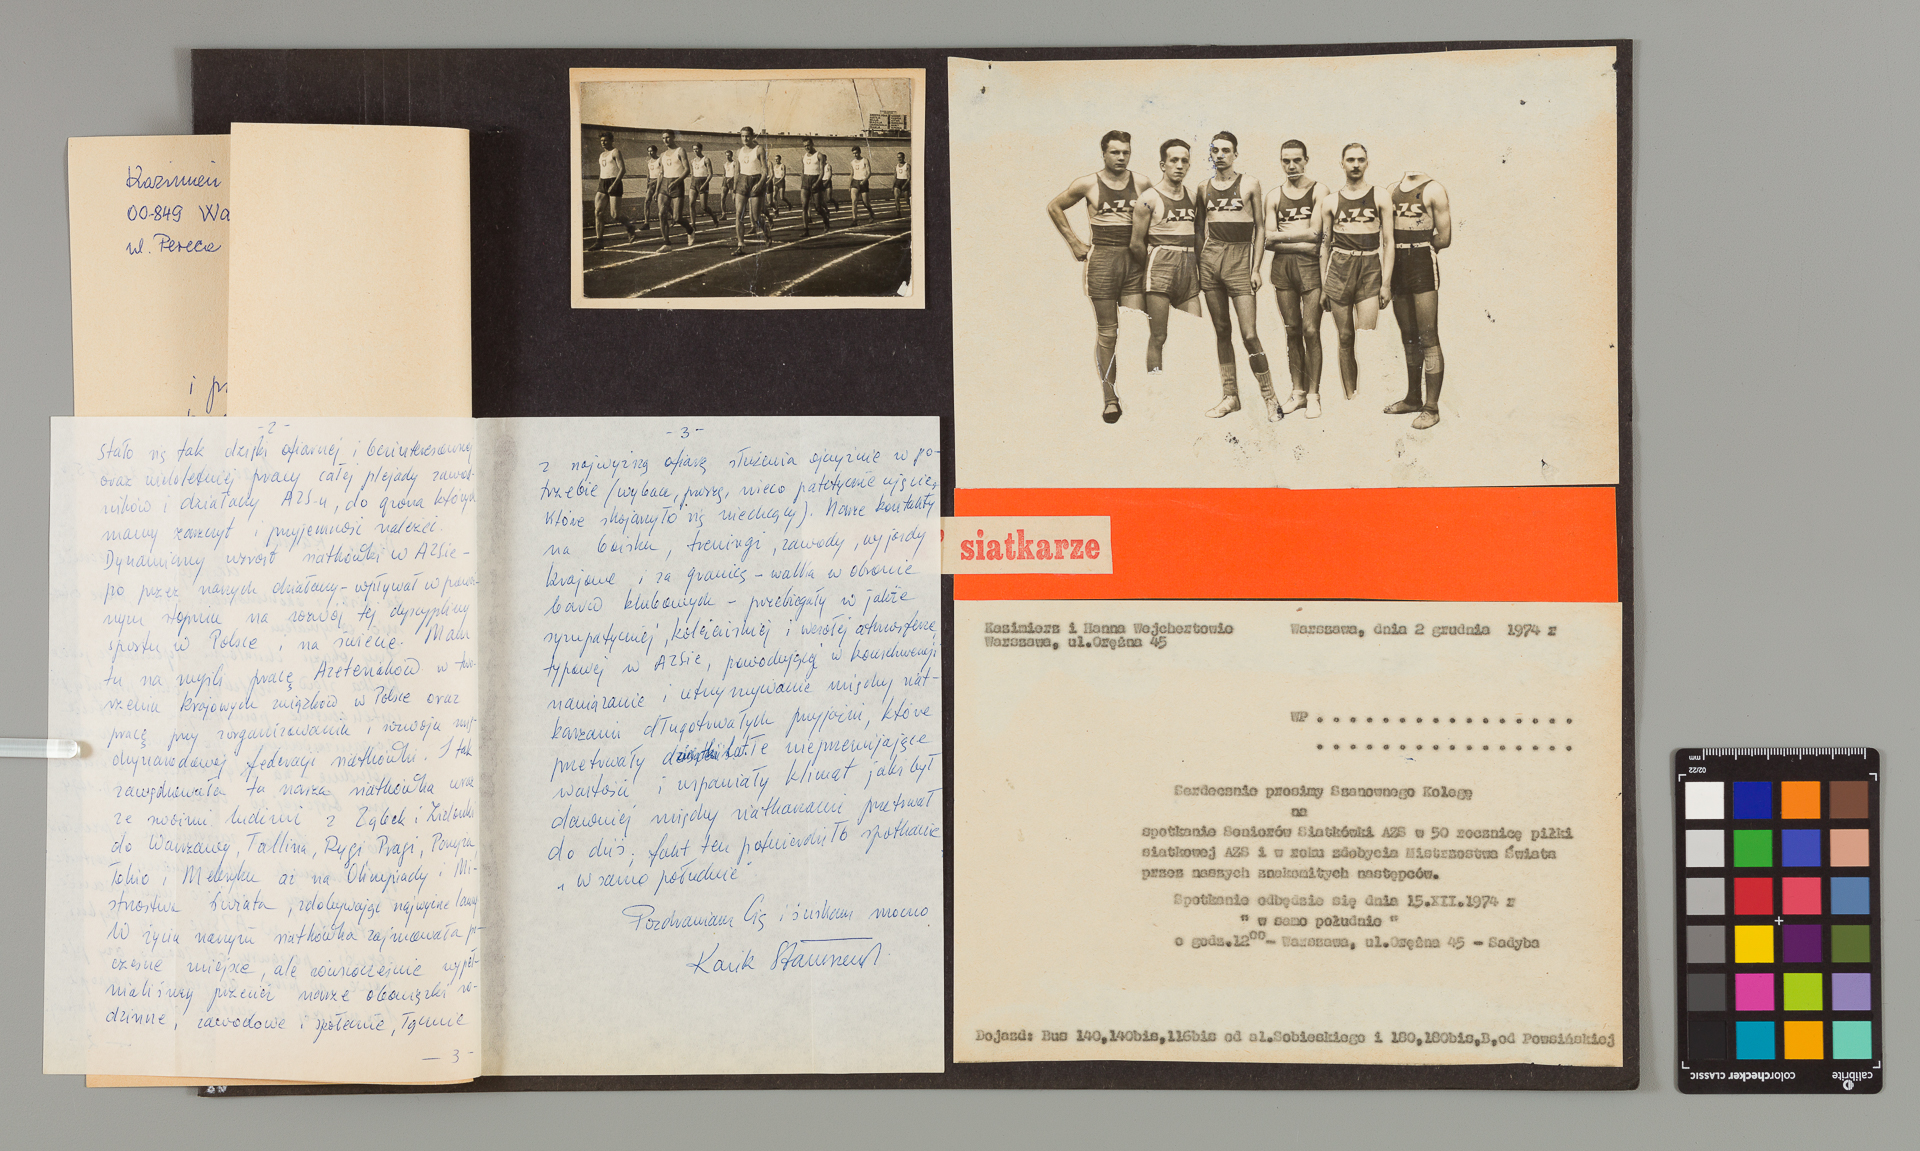 Kazimierz
00-849 Wa
ul. Pereca
i pr
-2-
stało się tak dzięki ofiarnej i bezinteresownej
oraz wieloletniej pracy całej plejady zawod-
ników i działaczy AZS-u, do grona których
mamy zaszczyt i przyjemność należeć.
Dynamiczny wzrost siatkówki w AZSie -
po przez naszych działaczy - wpływał w poważ-
nym stopniu na rozwój tej dyscypliny
sportu w Polsce i na świecie. Mam
tu na myśli pracę Azetesiaków w two-
rzeniu krajowych związków w Polsce oraz
pracę przy zorganizowaniu i rozwoju mię-
dzynarodowej federacji siatkówki. I tak
zawędrowała ta nasza siatkówka wraz
ze swoimi ludźmi z Ząbek i Zielonki
do Warszawy, Tallina, Rygi Pragi, Paryża
Tokio i Meksyku aż na Olimpiady i Mi-
strzostwa Świata, zdobywając najwyższe laury
W życiu naszym siatkówka zajmowała po-
czesne miejsce, ale równocześnie wypeł-
nialiśmy przecież nasze obowiązki ro-
dzinne, zawodowe i społeczne, łącznie
- 3 -
- 3 -
z najwyższą ofiarą służenia ojczyźnie w po-
trzebie (wybacz, proszę, nieco patetyczne ujęcie,
które skojarzyło się niechcący). Nasze kontakty
na boisku, treningi, zawody, wyjazdy
krajowe i za granicę - walka w obronie
barw klubowych - przebiegały w jakże
sympatycznej, koleżeńskiej i wesołej atmosferze,
typowej w AZSie, powodującej w konsekwencji
nawiązanie i utrzymywanie między siat-
karzami długotrwałych przyjaźni, które
przetrwały dziesiątki lat. Te nieprzemijające
wartości i wspaniały klimat jaki był
dawniej między siatkarzami przetrwał
do dziś; fakt ten potwierdziło spotkanie
„W samo południe"
Pozdrawiam Cię i ściskam mocno.
Kazik
AZS
AZS
AZS
AZS
AZS
AZS
siatkarze
Kazimierz i Hanna Wejchertowie
Warszawa, dnia 2 grudnia 1974 r
Warszawa, ul.Orężna 45
WP . . . . . . . . . . . . . . . .
. . . . . . . . . . . . . . . .
Serdecznie prosimy Szanownego Kolegę
na
spotkanie Seniorów Siatkówki AZS w 50 rocznicę piłki
siatkowej AZS i w roku zdobycia Mistrzostwa Świata
przez naszych znakomitych następców.
Spotkanie odbędzie się dnia 15.XII.1974 r
" w samo południe "
o godz.12⁰⁰- Warszawa, ul.Orężna 45 - Sadyba
Dojazd: Bus 140,140bis,116bis od al.Sobieskiego i 180,180bis,B,od Powsińskiej
mm
02/22
calibrite
colorchecker CLASSIC